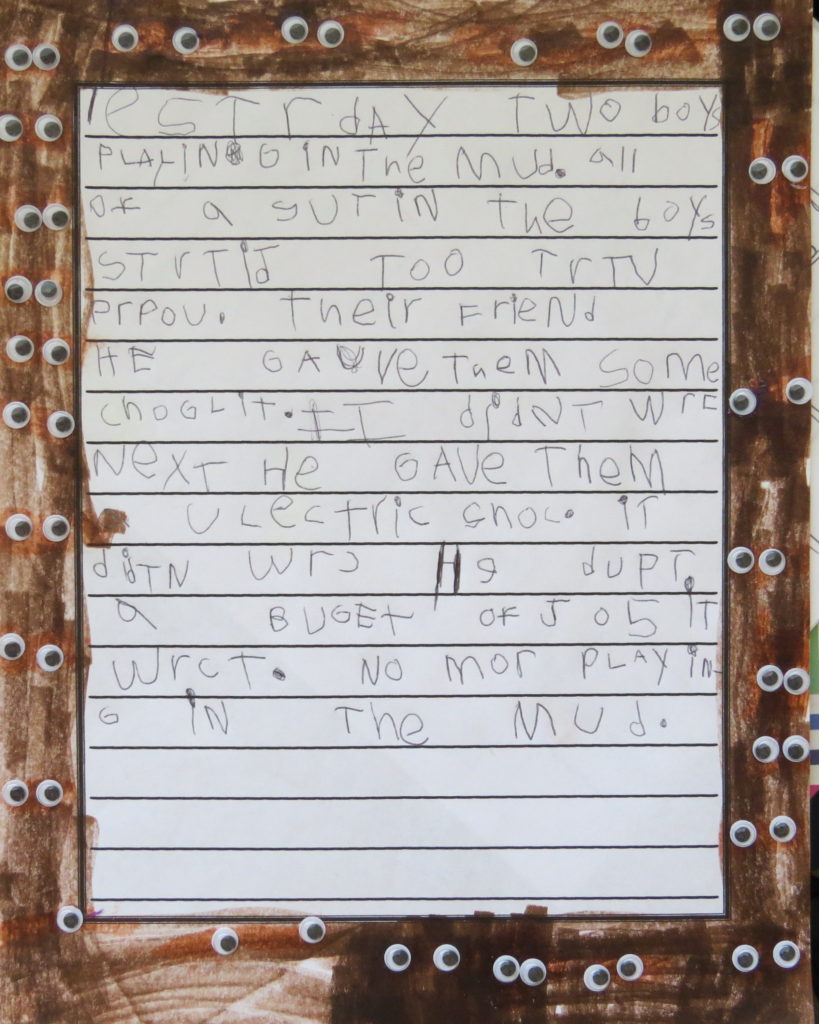 YeSTrdAY TWO boys
PLAYiNG iN The MUd. all
OF a SUTiN The boys
STrTid TOO TrTU
PrPOU. Their FrieNd
HE GAVe TheM SOMe
ChOGLiT. IT didNT WrE
NeXT He GAVe TheM
ULectric ShOC. iT
didTN Wrc He dUPT
a BUGET OF JO5 iT
WrcT. NO mOr PLAYiN-
G iN The MUd.